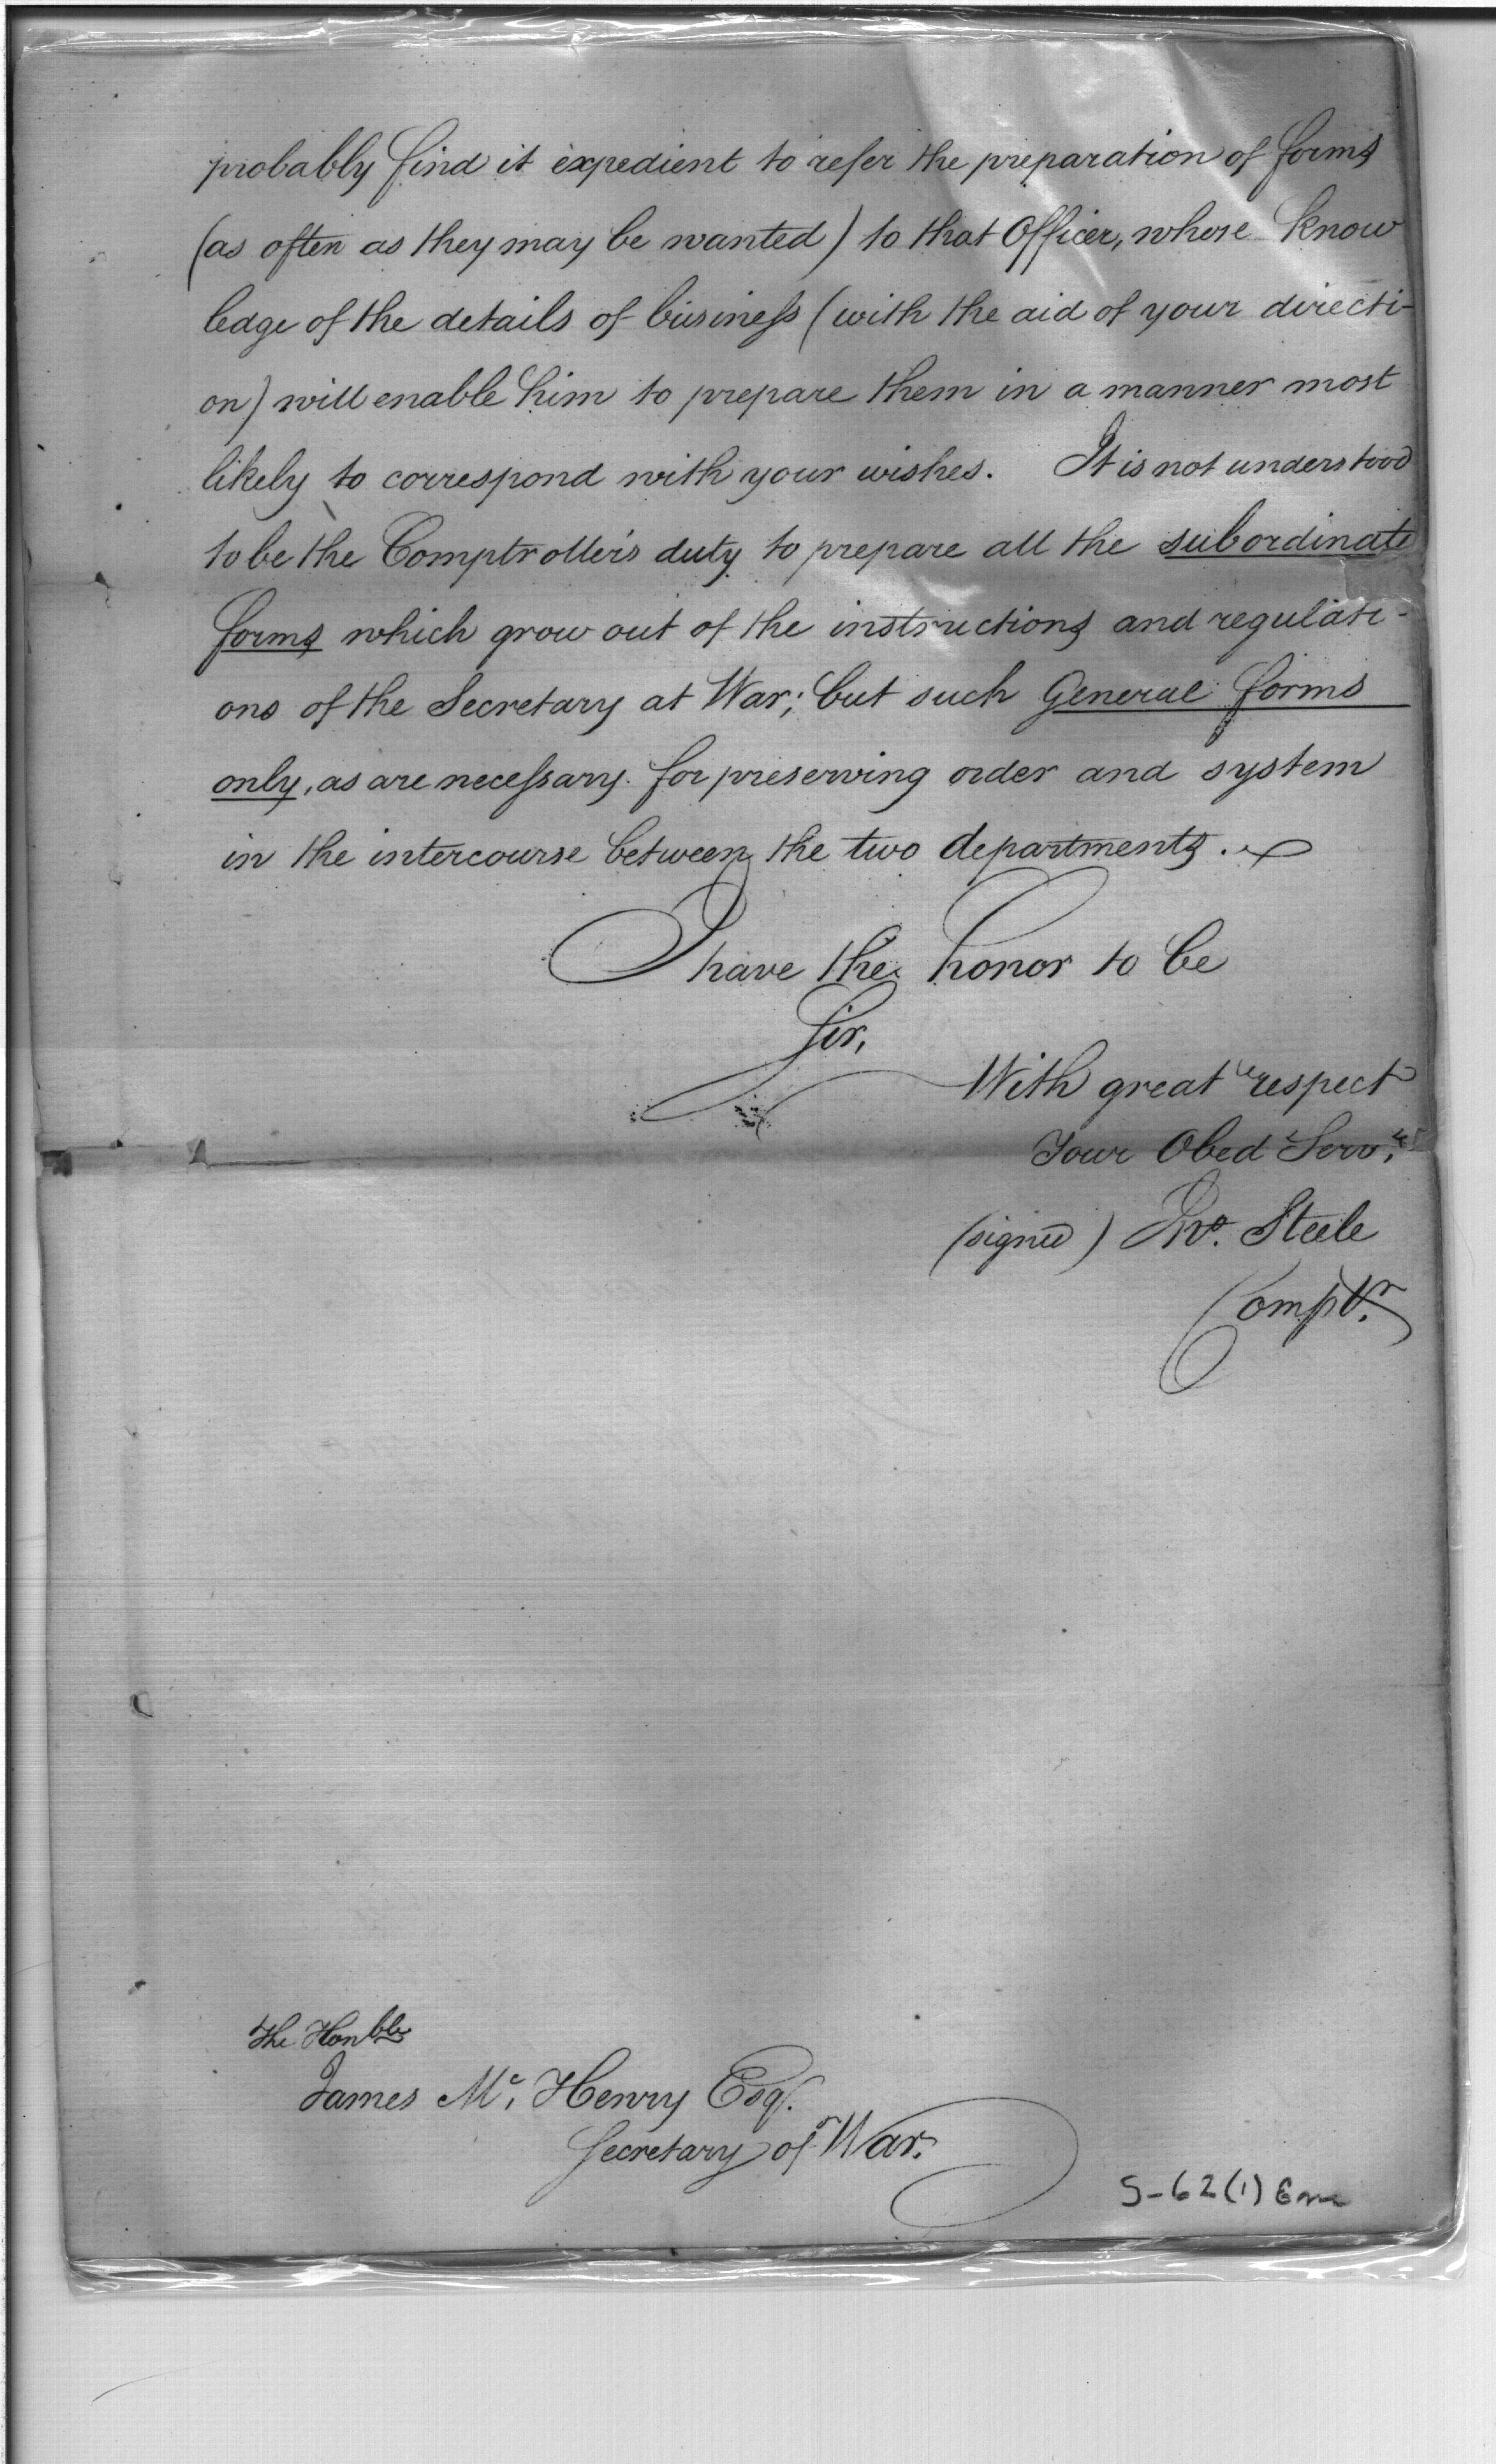 probably find it expedient to refer the preparation of forms
(as often as they may be wanted) to that Officer, whose know
ledge of the details of business (with the aid of your directi-
on) will enable him to prepare them in a manner most
likely to correspond with your wishes. It is not understood
to be the Comptroller's duty to prepare all the subordinate
forms which grow out of the instructions and regulati-
ons of the Secretary at War; but such General forms
only, as are necessary for preserving order and system
in the intercourse between the two departments.
I have the honor to be
Sir,
With great respect
Your Obed Servt.
(signed) Jno. Steele
Comptr.
The Honble
James Mc. Henry Esq.
Secretary of War.
S-62(1)